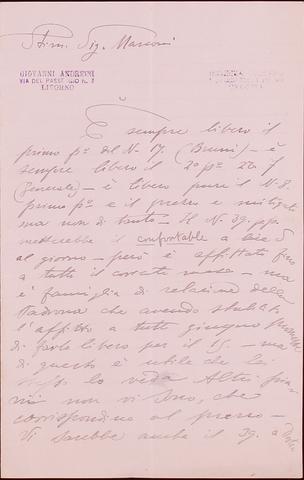 Stim. Sig. Marconi
GIOVANNI ANDREINI
VIA DEL PASSEGGIO N. 3
LIVORNO
È sempre libero il
primo p.º del N. 17. (Bruni) – è
sempre libero il 2º pº 22
– è libero pure il N. 8.
primo pº e il prezzo e mitigato
ma non di tanto – Il N. 39. p.p.
metterebbe il confortable a
al giorno – però è affittato fino
a tutto il corrente mese – ma
è famiglia di relazione della
padrona che avendo
l'affitto a tutto giugno
di farlo libero per il 15. – ma
di questo è utile che lei
lo veda Altri
non vi sono, che
corrispondino al prezzo –
Vi sarebbe anche il 39. a